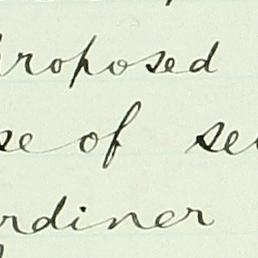 proposed
se of se
rdiner